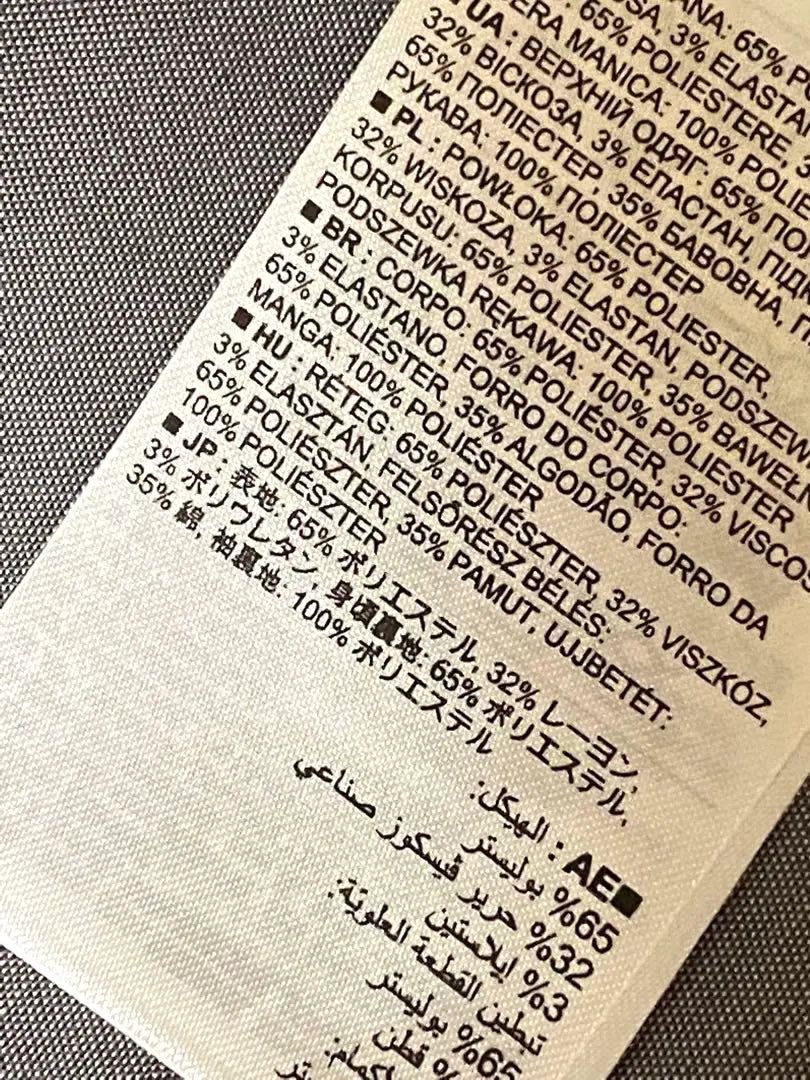 ANA: 65% PO
OSA, 3% ELASTAN
65% POLIESTERE, 3
ERA MANICA: 100% POLIE
■ UA : ВЕРХНІЙ ОДЯГ: 65% ПОЛ
32% ВІСКОЗА, 3% ЕЛАСТАН, ПІДК
65% ПОЛІЕСТЕР, 35% БАВОВНА, П
РУКАВА: 100% ПОЛІЕСТЕР
■ PL : POWŁOKA: 65% POLIESTER,
32% WISKOZA, 3% ELASTAN, PODSZEW
KORPUSU: 65% POLIESTER, 35% BAWEŁN
PODSZEWKA RĘKAWA: 100% POLIESTER
■ BR : CORPO: 65% POLIÉSTER, 32% VISCOS
3% ELASTANO, FORRO DO CORPO:
65% POLIÉSTER, 35% ALGODÃO, FORRO DA
MANGA: 100% POLIÉSTER
■ HU : RÉTEG: 65% POLIÉSZTER, 32% VISZKÓZ,
3% ELASZTÁN, FELSŐRÉSZ BÉLÉS:
65% POLIÉSZTER, 35% PAMUT, UJJBETÉT:
100% POLIÉSZTER
■ JP : 表地: 65% ポリエステル, 32% レーヨン,
3% ポリウレタン, 身頃裏地: 65% ポリエステル,
35% 綿, 袖裏地: 100% ポリエステル
■AE : الهيكل:
65% بوليستر
32% حرير ڤيسكوز صناعي
3% إيلاستين
تبطين القطعة العلويّة:
65% بوليستر
% قطن
كمام:
ستر